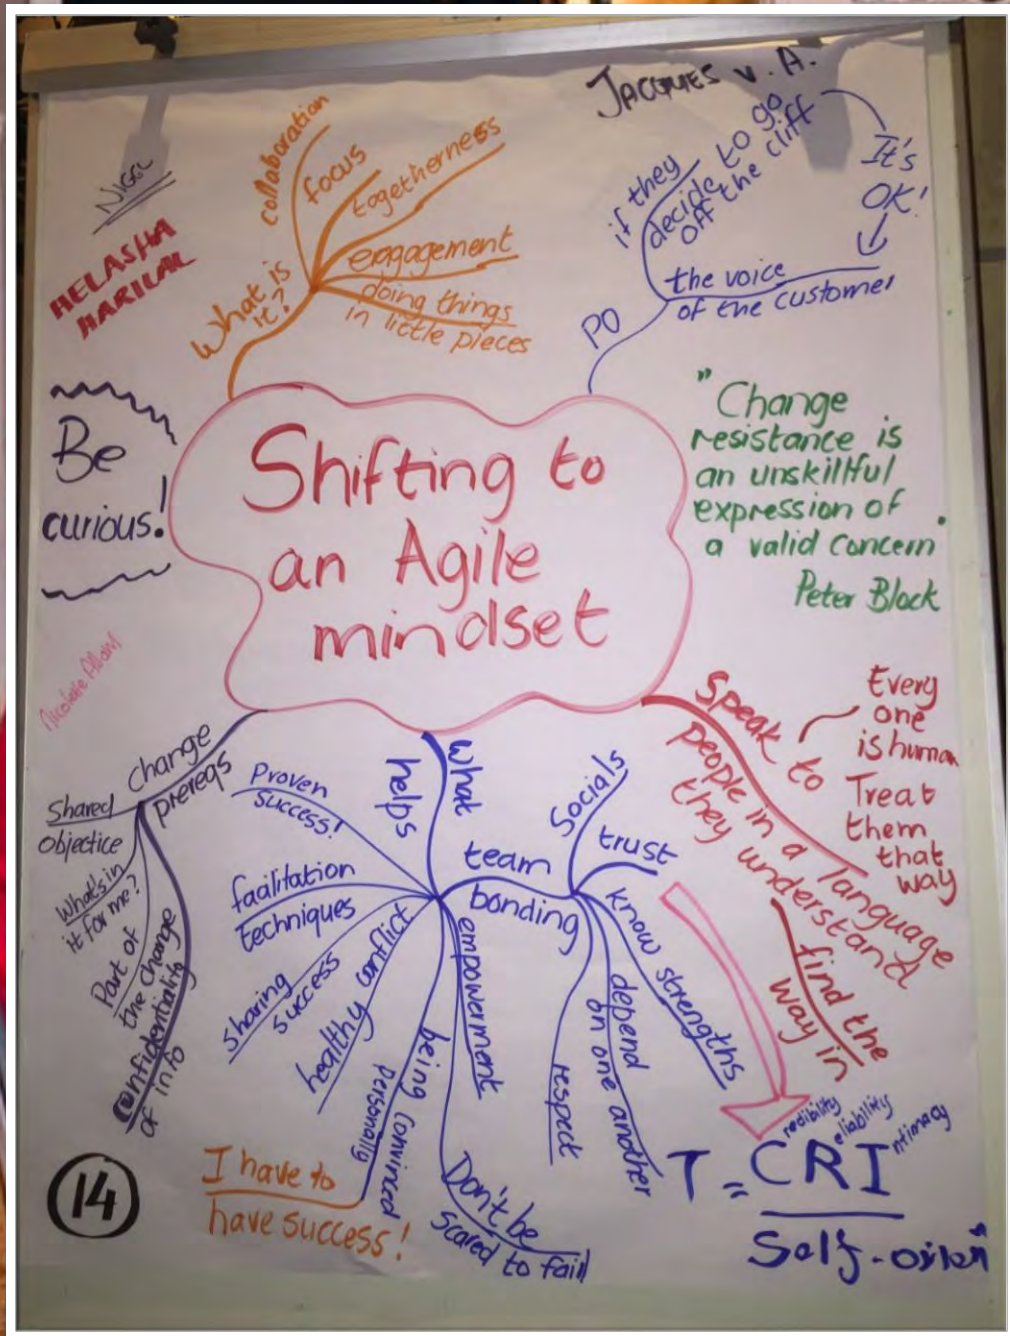 JACQUES v. A.
HELASHA
HARILAL
What is
it?
collaboration
focus
togetherness
engagement
doing things
in little pieces
PO
if they
decide to go
off the cliff
It's
OK!
the voice
of the customer
Be
curious!
Shifting to
an Agile
mindset
"Change
resistance is
an unskillful
expression of
a valid concern.
Peter Block
Change
prereqs
Shared
objectice
What's in
it for me?
Part of
the change
Confidentiality
of info
What
helps
Proven
success!
facilitation
techniques
sharing
success
healthy conflict
being convinced
personally
I have to
have success!
empowerment
Don't be
scared to fail
team
bonding
Socials
trust
know strengths
depend
on one another
respect
Speak to
people in a language
they understand
Every
one
is human
Treat
them
that
way
find the
way in
T = CRI
redibility
eliability
ntimacy
Self-orien"
14